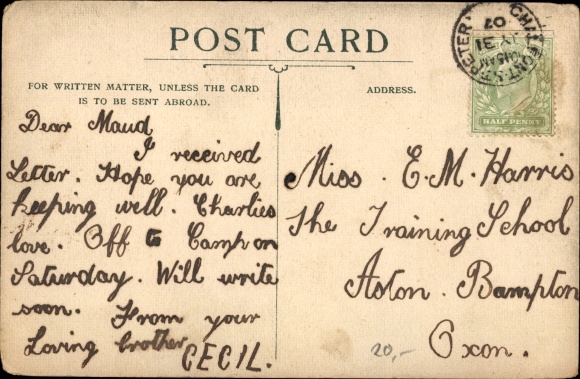 POST CARD
FOR WRITTEN MATTER, UNLESS THE CARD
IS TO BE SENT ABROAD.
ADDRESS.
Dear Maud
I received
Letter. Hope you are
keeping well. Charlies
love. Off to Camp on
Saturday. Will write
soon. From your
Loving brother
CECIL.
Miss. E. M. Harris
The Training School
Aston. Bampton
Oxon.
20,-
CHALFONT ST PETER
JY 31
07
HALF PENNY